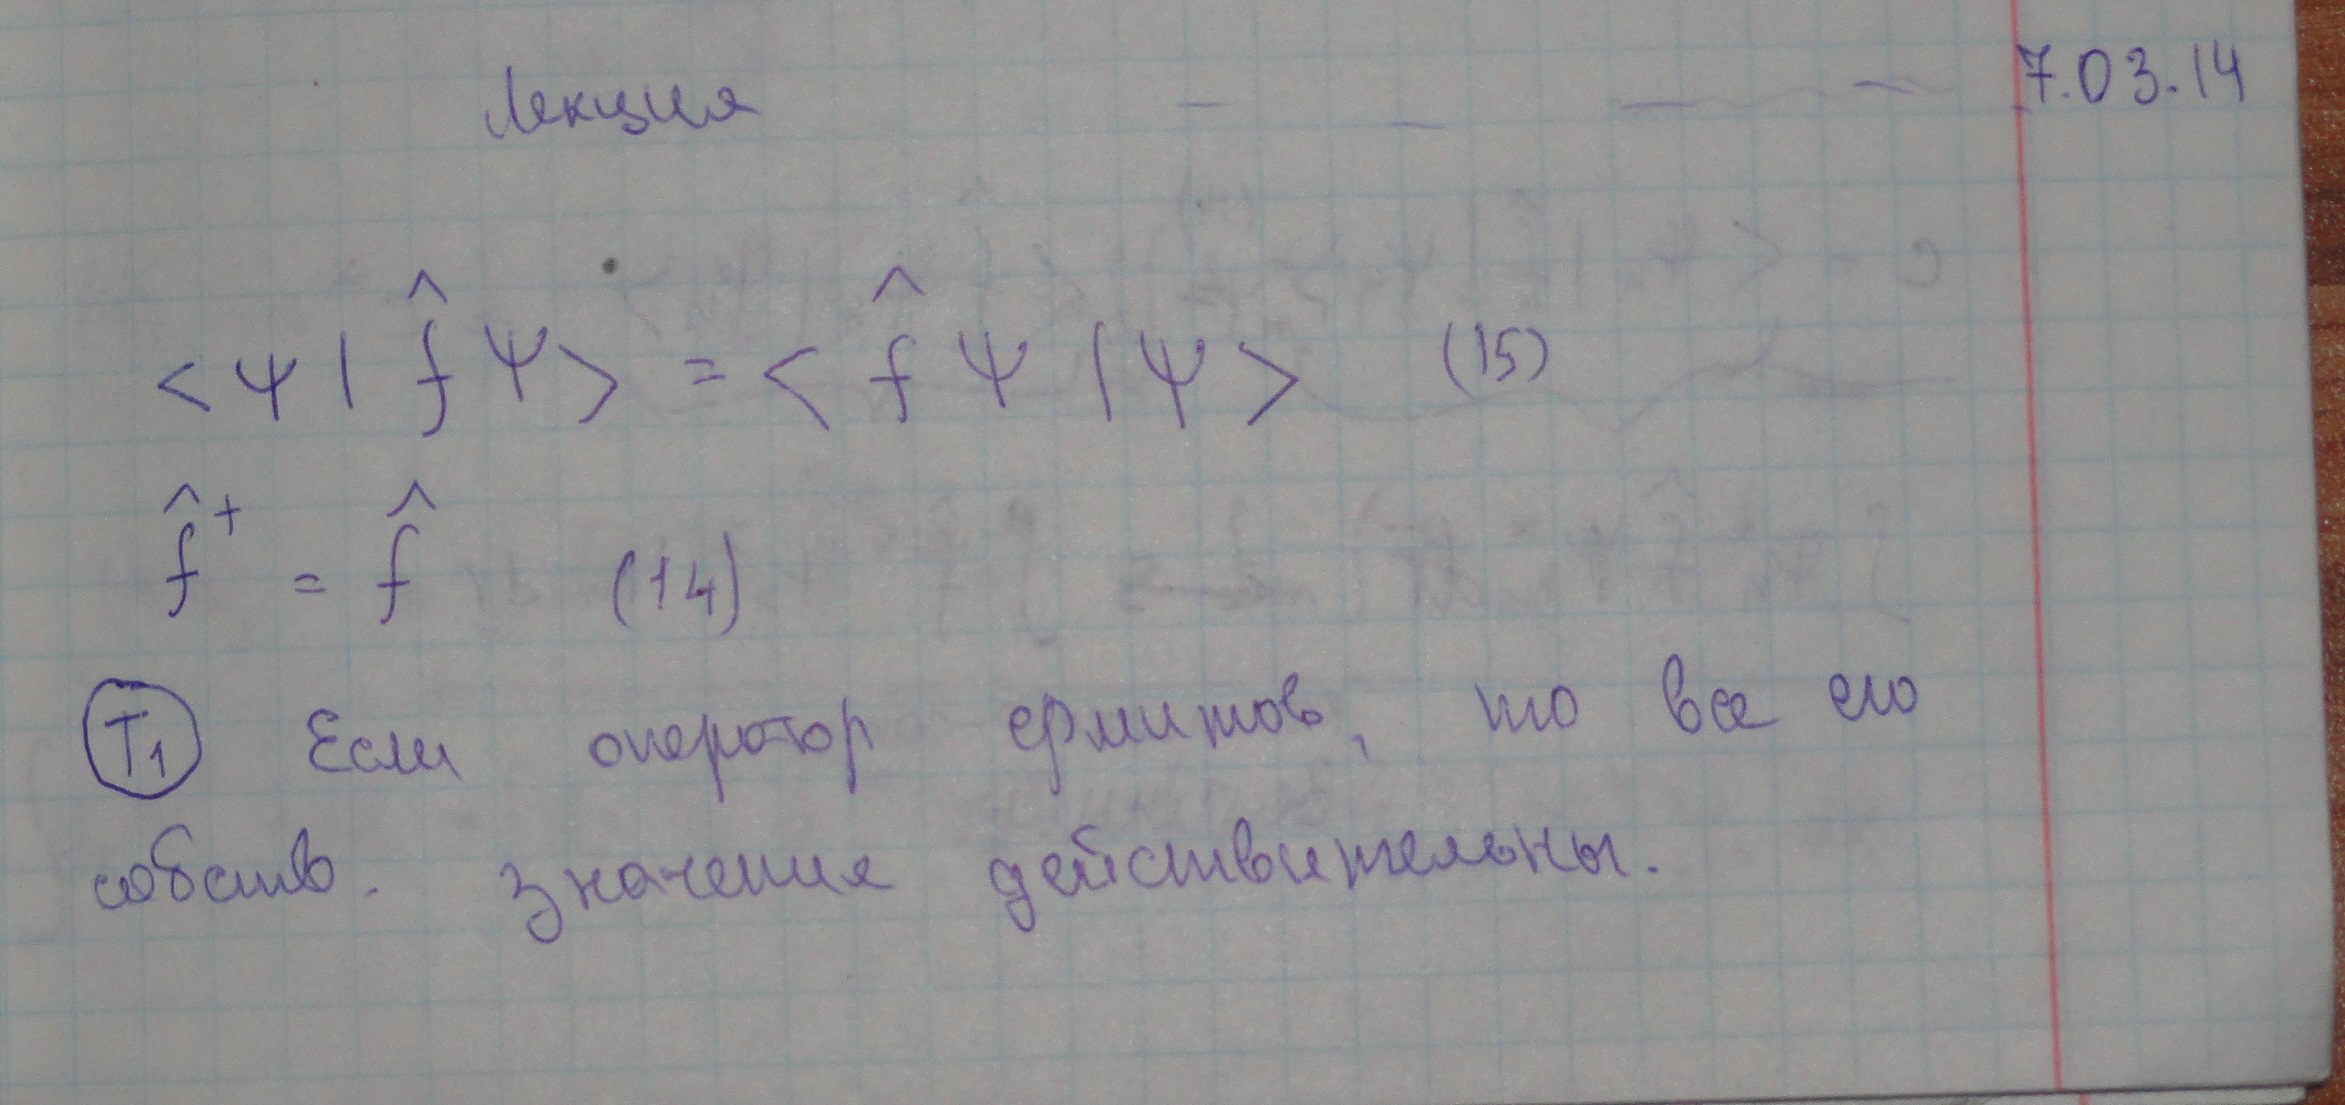 Лекция 7.03.14
<Ψ| f̂ Ψ> = < f̂ Ψ | Ψ > (15)
f̂⁺ = f̂ (14)
T₁ Если оператор ермитов, то все его
собств. значения действительны.